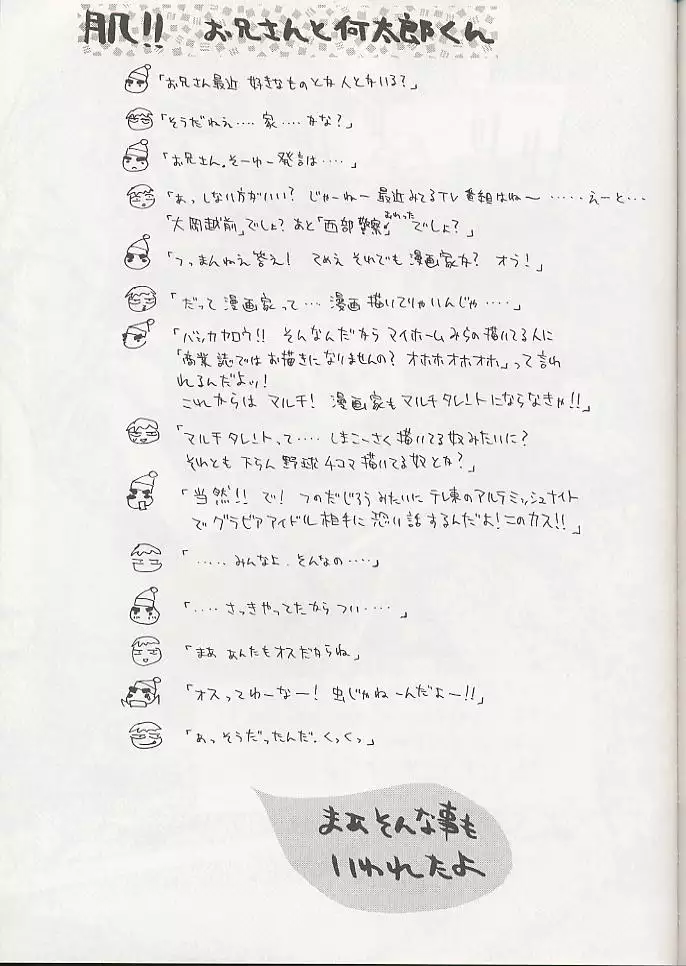 肌!! お兄さんと何太郎くん
「お兄さん最近 好きなものとか人とかいる?」
「そうだねえ‥‥ 家‥‥かな?」
「お兄さん.そーゆー発言は‥‥」
「あっしない方がいい? じゃーねー最近みてるTV番組はね〜 ‥‥‥えーと‥‥
「大岡越前」でしょ?あと「西部警察」おわったでしょ?」
「つっまんねえ答え! てめえ それでも漫画家か? オウ!」
「だって漫画家って‥‥漫画描いてりゃいんじゃ‥‥」
「バッカヤロウ!! そんなんだから マイホームみらの描いてる人に
「商業誌ではお描きになりませんの? オホホオホオホ」って言わ
れるんだよッ!
これからは マルチ! 漫画家もマルチタレントにならなきゃ!!」
「マルチタレントって‥‥ しまこーさく描いてる奴みたいに?
それとも 下らん野球4コマ描いてる奴とか?」
「当然!! で! つのだじろうみたいに テレ東のアルテミッシュナイト
でグラビアアイドル相手に恐い話するんだよ!このカス!!」
「‥‥‥みんなよ.そんなの‥‥」
「‥‥さっきやってたからつい‥‥」
「まあ あんたもオスだからね」
「オスってゆーなー! 虫じゃねーんだよー!!」
「あっそうだったんだ.くっくっ」
まあそんな事も
いわれたよ